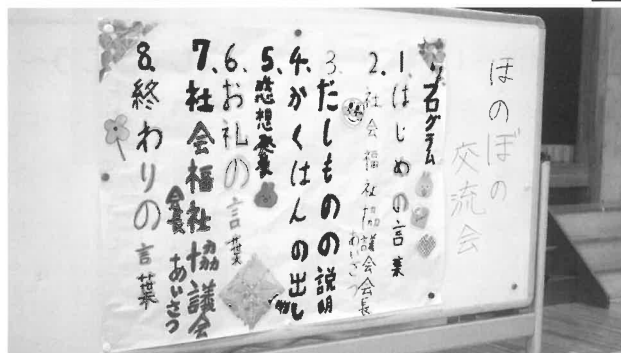 ほのぼの
交流会
プログラム
1.はじめの言葉
2.社会福祉協議会会長
あいさつ
3.だしものの説明
4.かくはんの出し
物
5.感想発表
6.お礼の言葉
7.社会福祉協議会
会長あいさつ
8.終わりの言葉